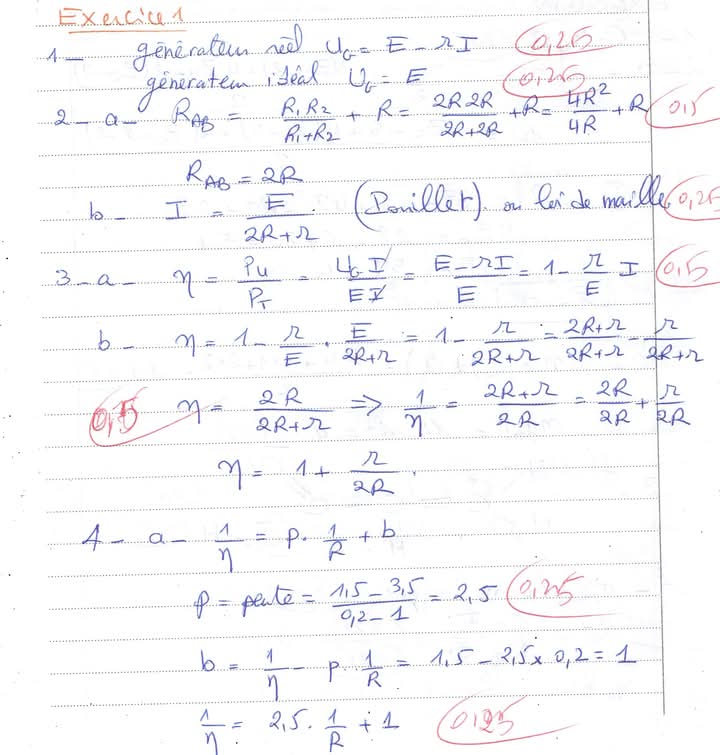 Exercice 1
1 - générateur réel U_G = E - rI 0,25
générateur idéal U_G = E 0,25
2 - a - R_AB = R₁R₂/(R₁+R₂) + R = 2R 2R/(2R+2R) + R = 4R²/4R + R 0,5
R_AB = 2R
b - I = E/(2R+r) (Pouillet) ou loi de maille 0,25
3 - a - η = P_U/P_T = U_G I/EI = (E - rI)/E = 1 - r/E I 0,5
b - η = 1 - r/E · E/(2R+r) = 1 - r/(2R+r) = (2R+r)/(2R+r) - r/(2R+r)
0,5 η = 2R/(2R+r) => 1/η = (2R+r)/2R = 2R/2R + r/2R
η = 1 + r/2R .
4 - a - 1/η = p · 1/R + b
p = pente = (1,5 - 3,5)/(0,2 - 1) = 2,5 0,25
b = 1/η - p 1/R = 1,5 - 2,5 x 0,2 = 1
1/η = 2,5 · 1/R + 1 0,25